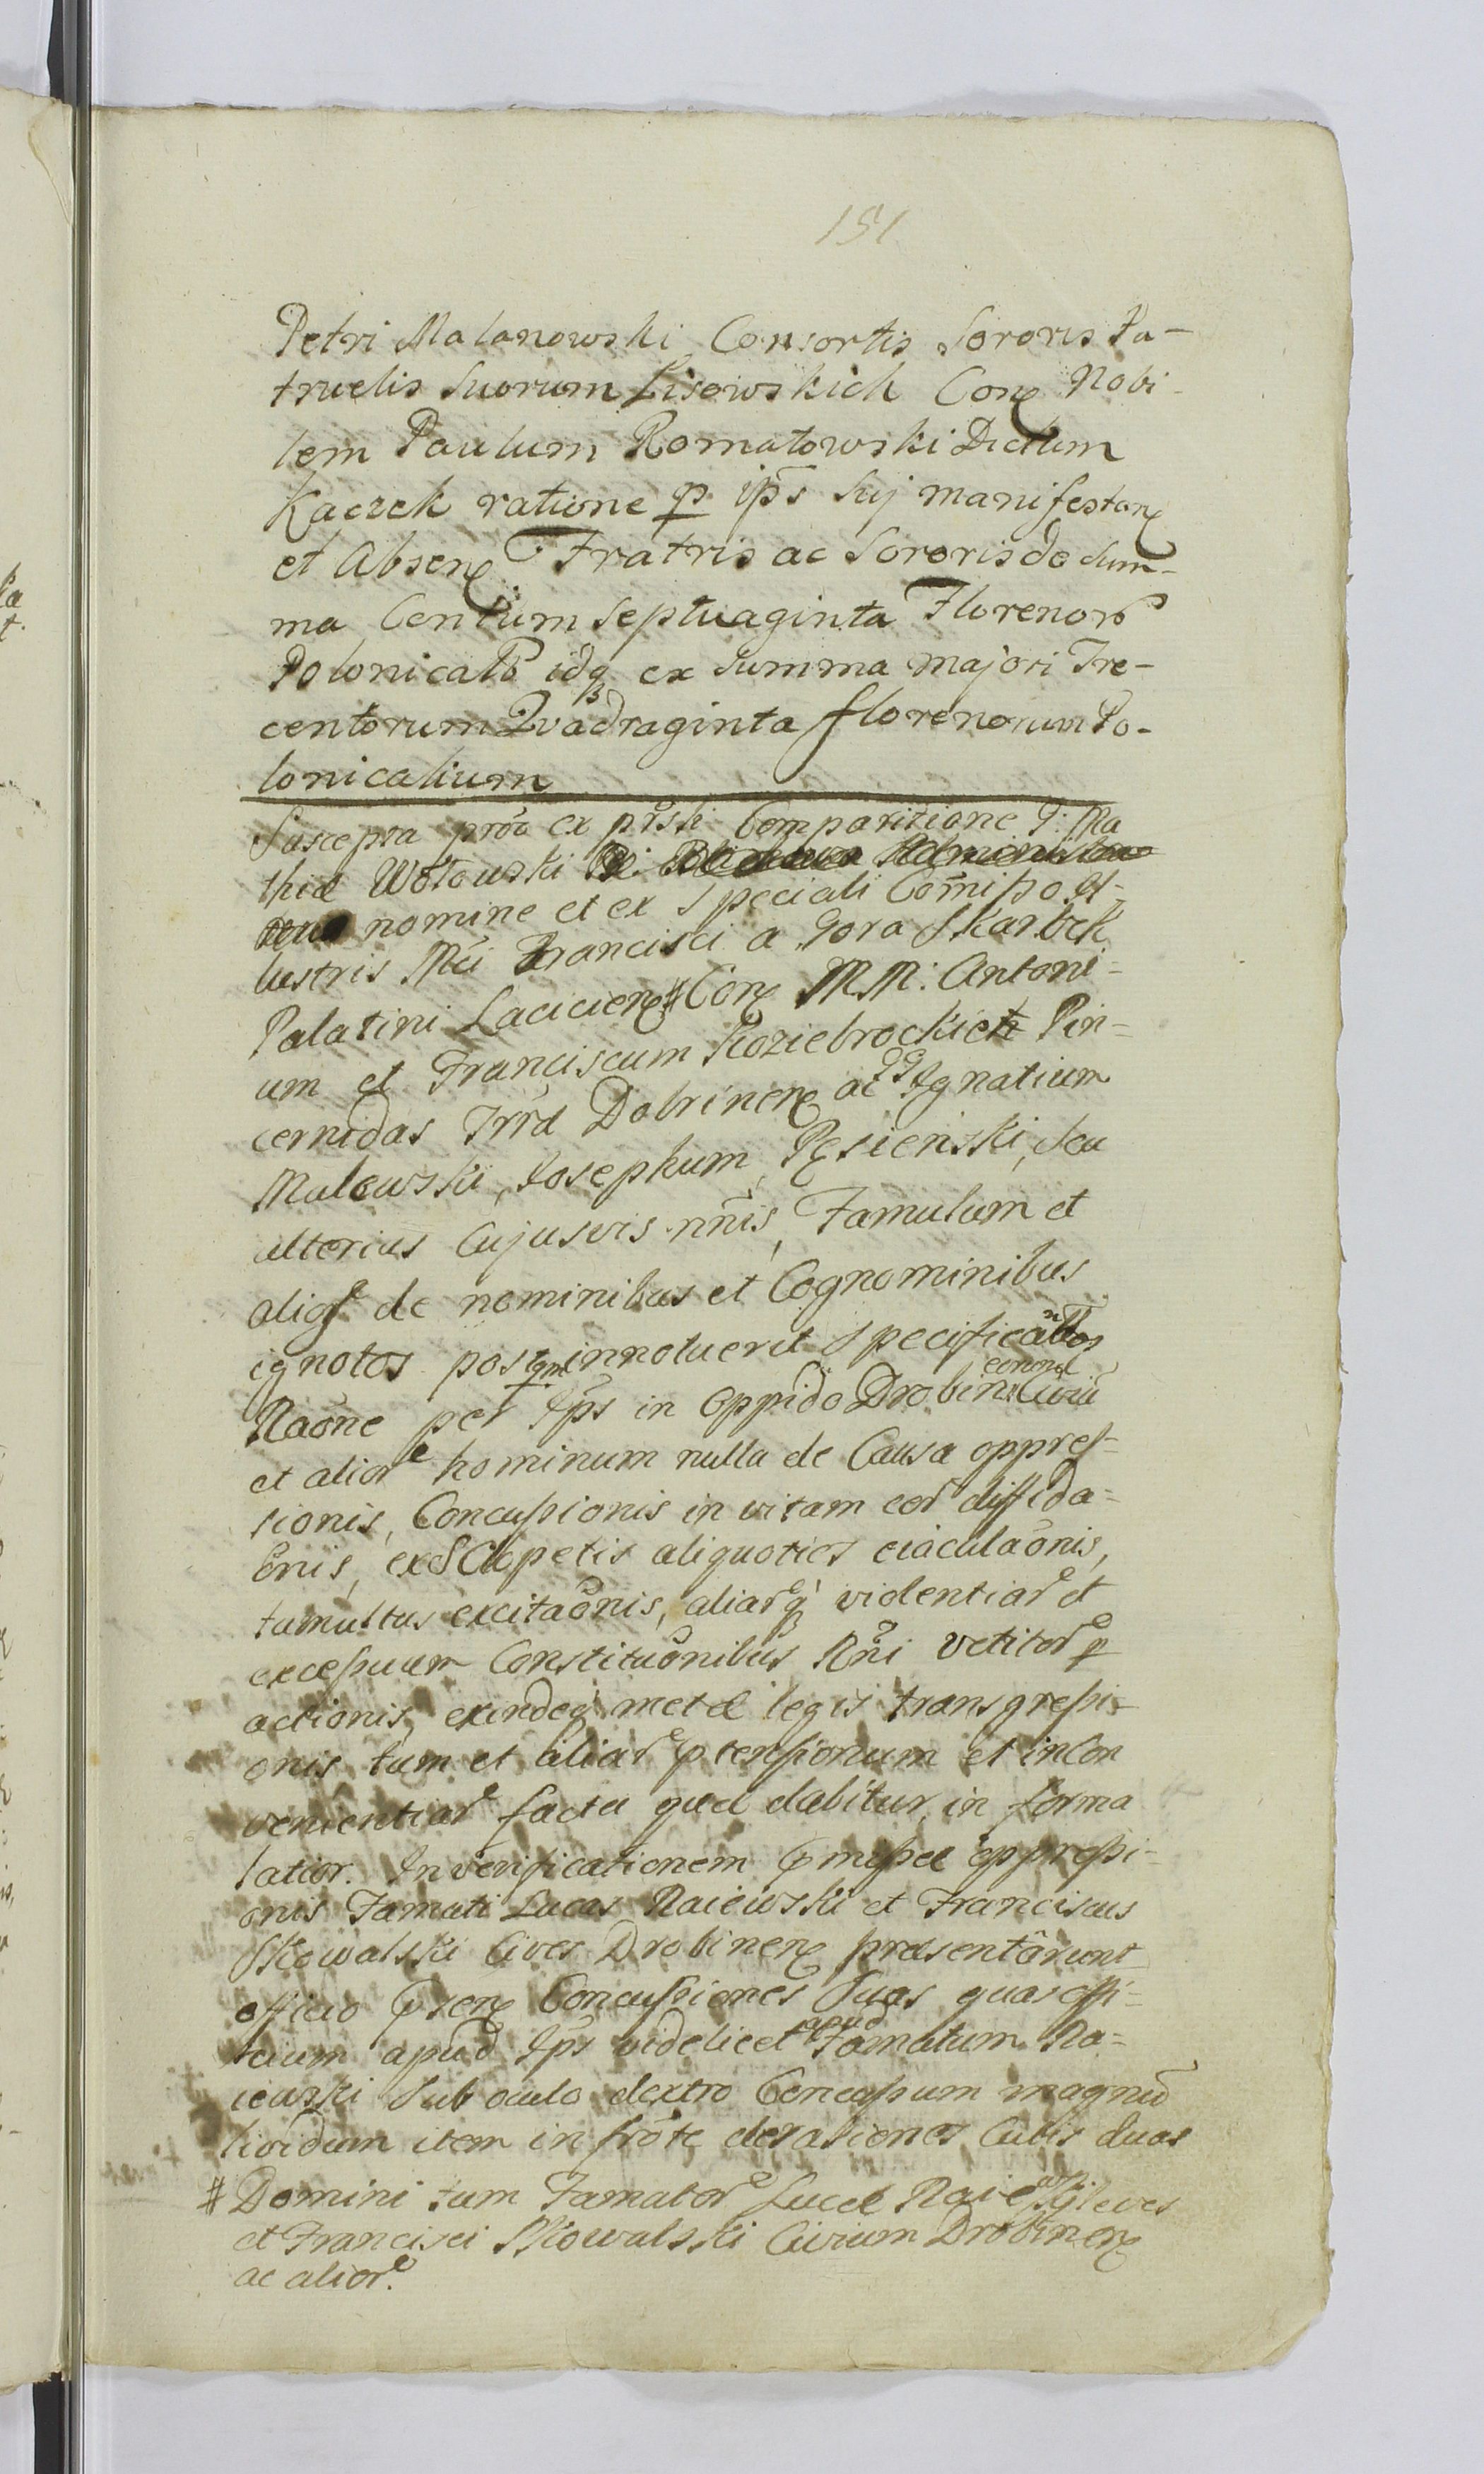 151
Petri Malanowski Consortis Sororis Pa-
truelis Suorum Lisowskich Con Nobi-
lem Paulum Romatowski Dictum
Kaczek ratione p ips Suj manifestan
et Absen Fratris ac Sororis de Sum-
ma Centum Septuaginta Florenor
Polonical idq ex Summa majori Tre-
centorum Qvadraginta florenorum Po-
lonicalium
Suscepta prot ex Comparitione G: Ma
thiæ Wołowski
nomine et ex Speciali Comisso Il-
lustris Mci Francisci a Gora Skarbek
Palatini Lacicien # Con MM: Antoni-
um et Franciscum Koziebrockich Pin-
cernidas Trræ Dobrinen ac GG Ignatium
Malewski, Josephum, Pęsieński, Seu
alterius Cujusvis nnis, Famulum et
alios de nominibus et Cognominibus
ignotos postqm innotuerit Specifica
Raone per Ips in Oppido Drobin Civiu
et alior hominum nulla de Causa oppres-
sionis, Concussionis in vitam eor diffida-
onis, ex Sclopetis aliquoties eiaculaonis,
tumultus excitaonis, aliarq violentiar et
excessuum Constituonibus Rni vetitor p
actionis, exindeq metæ legis transgressi-
onis tum et aliar ptensionum et incon
venientiar facta quæ dabitur, in forma
latior. In verificationem pmissæ oppressi-
onis Famati Lucas Raiewski et Franciscus
Skowalski Cives Drobinen præsentârunt
officio psen Concussiones Suas quas offi-
cium apud Ips videlicet apud Famatum Ra-
iewski Sub oculo dextro Concussum magnũ
lividum item in frõte derasiones Cutis duas
# Domini tum Famator Lucæ Raiewski
et Francisci Skowalski Civium Drobinen
ac alior.